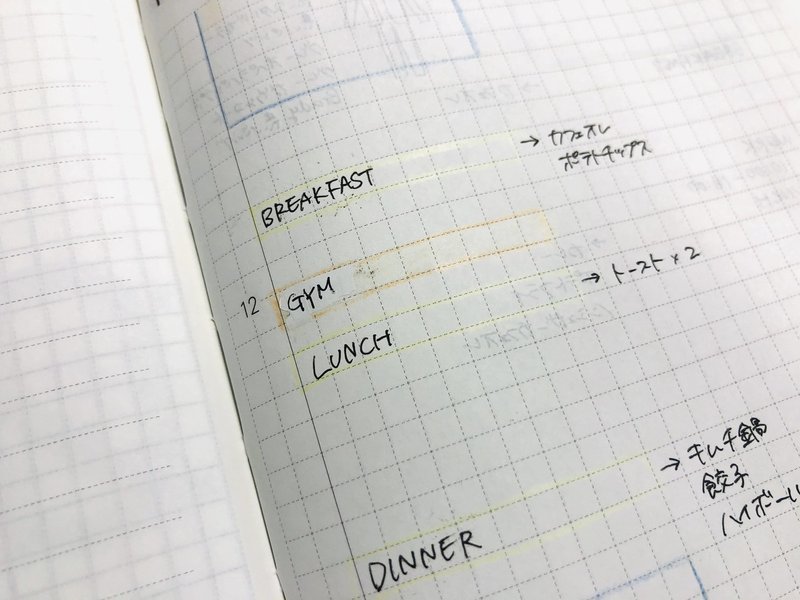 BREAKFAST
→ カフェオレ
ポテトチップス
12 GYM
LUNCH
→ トースト×2
DINNER
→ キムチ鍋
餃子
ハイボール